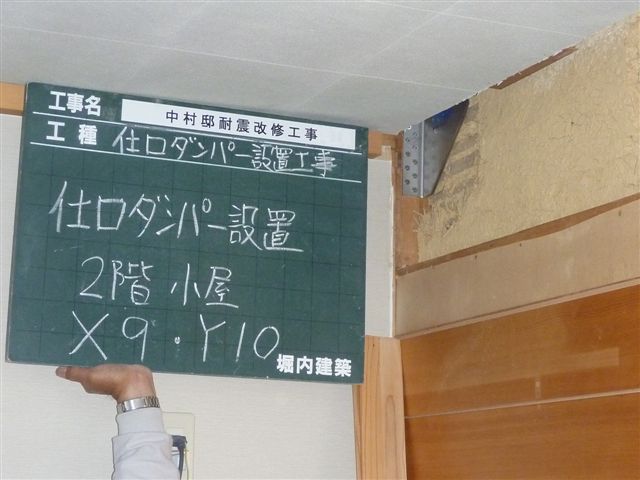 工事名 中村邸耐震改修工事
工種 仕口ダンパー設置工事
仕口ダンパー設置
2階 小屋
X9・Y10
堀内建築